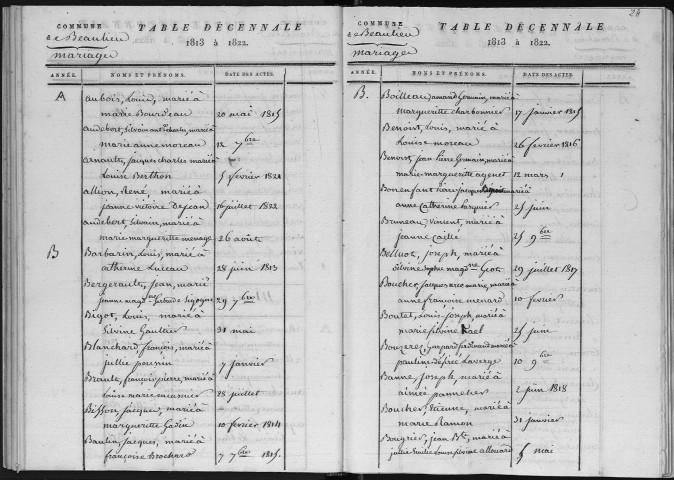 COMMUNE
de Beaulieu
mariages
TABLE DÉCENNALE
1813 à 1822.
ANNÉE. NOMS ET PRÉNOMS. DATE DES ACTES.
A aubois, Louis, marié à
marie Bourdeau 20 mai 1815
audebert, silvain charles, marié à
marie anne moreau 12 7bre
arnault, jacques charles marié à
Louise Berthon 5 fevrier 1821
allion, René, marié à
jeanne victoire Dejean 16 juillet 1822
audebert, silvain, marié à
marie marguerite menage 26 août
B Barbarin, Louis, marié à
catherine Luceau 28 juin 1813
Bergerault, jean, marié
29 7bre
Bigot, Louis, marié à
Silvine Gaultier 31 mai
Blanchard, françois, marié à
jullie poupin 7 janvier
Brault, françois pierre, marié à
Louise marie meusnier 28 juillet
Bisson, jacques, marié à
marguerite Godin 10 fevrier 1814
Baulin, jacques, marié à
françoise Brochard 7 7bre 1815.
24
COMMUNE
de Beaulieu
mariages
TABLE DÉCENNALE
1813 à 1822.
ANNÉE. NOMS ET PRÉNOMS. DATE DES ACTES.
B. Boilleau, amand Germain, marié à
marguerite charbonnier 17 janvier 1815
Benoist, Louis, marié à
Louise moreau 26 fevrier 1816
Benoist, jean pierre Germain, marié à
marie marguerite agenet 12 mars
Bonenfant, marié à
anne catherine 25 juin
Bruneau, vincent, marié à
jeanne caillé 25 9bre
Belluot, joseph, marié à
Silvine sophie magdne 29 juillet 1817
Boucher, jacques marie, marié à
anne françoise menard 10 fevrier
Boutet, Louis joseph, marié à
marie silvine 25 juin
Bouzeret, Gaspard ferdinand, marié à
pauline désirée 10 9bre
Banne, joseph, marié à
aimée pannetier 2 juin 1818
Boucher, Etienne, marié à
marie Ramon 31 janvier
Bougrier, jean Bte, marié à
jullie Emilie Louise silvine allouard 5 mai